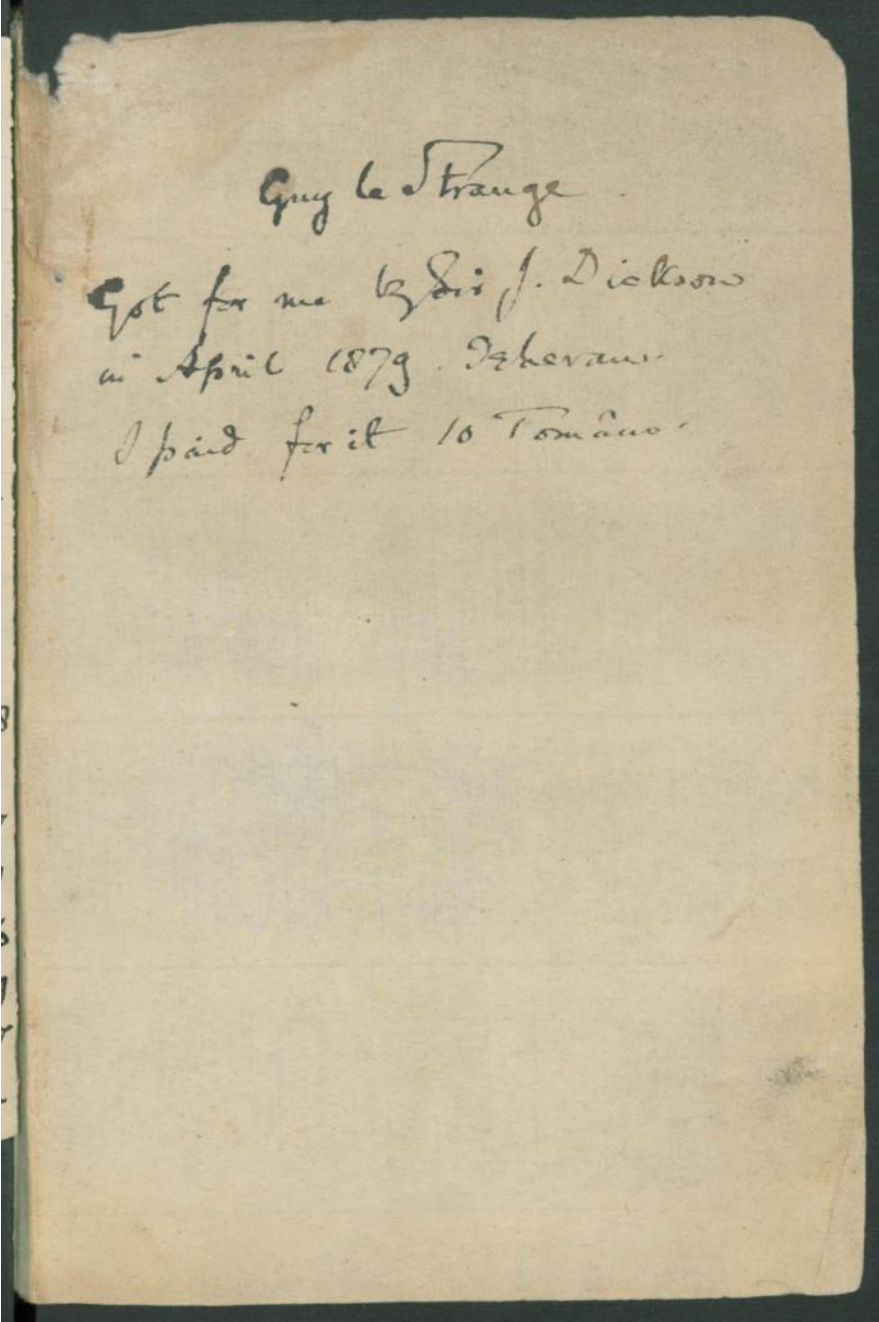 Guy le Strange
Got for me by Sir J. Dickson
in April 1879. Teheran.
I paid for it 10 Tomâns.